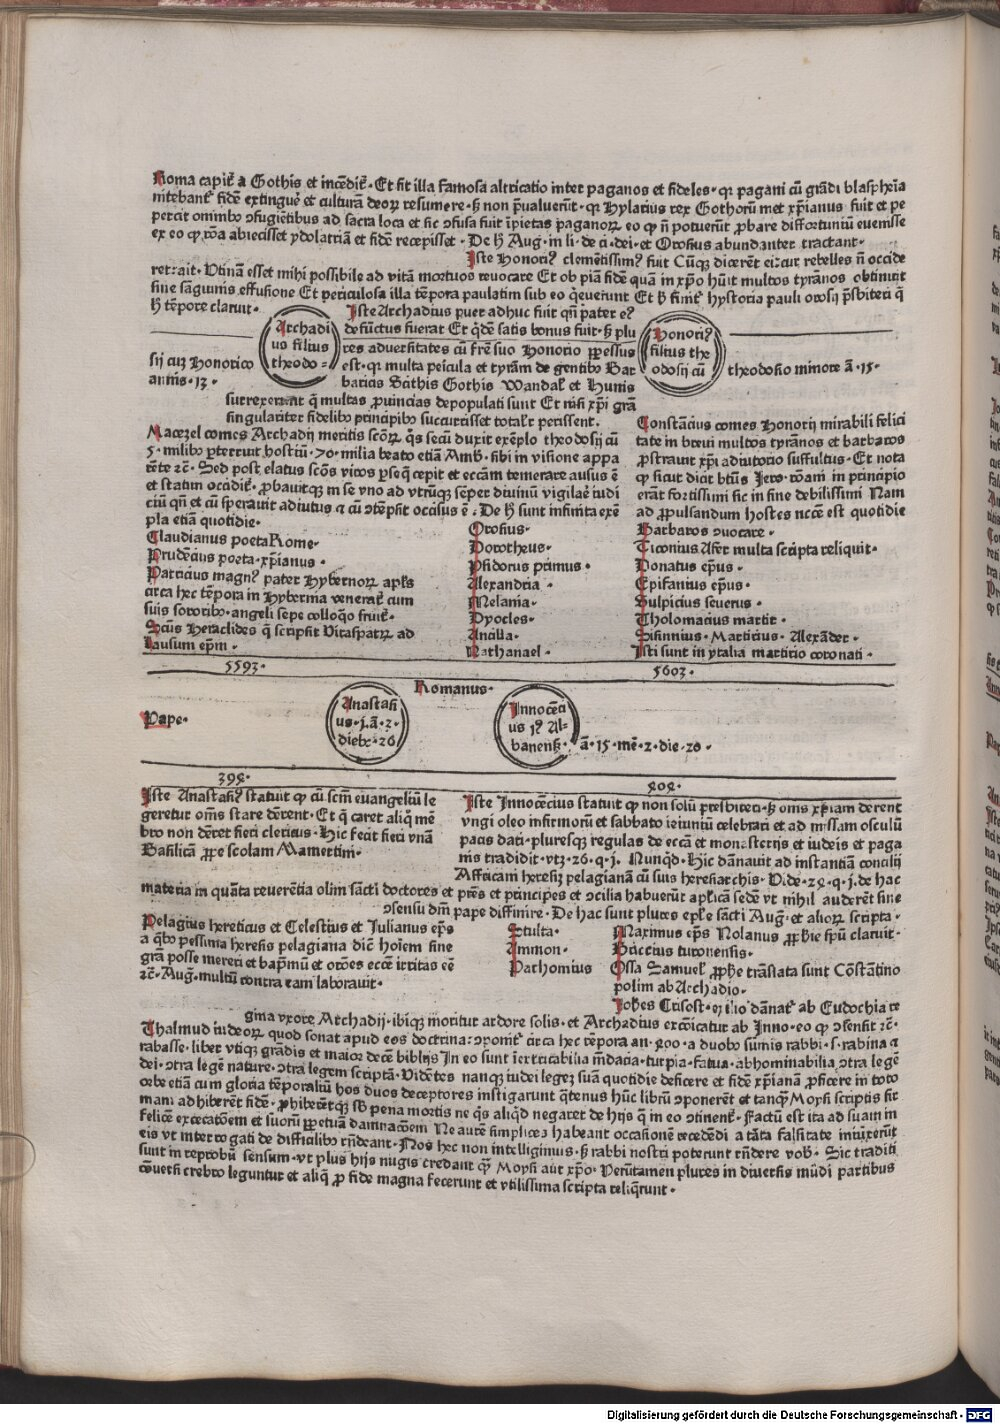 Roma capit̃ a Gothis et incēdit̃· Et fit illa famosa altricatio inter paganos et fideles· qꝛ pagani cū grādi blasphēia
nitebant̃ fidē extinguē et culturā deoꝝ resumere· sꝫ non p̄ualuerūt· qꝛ Hylarius rex Gothorū met xp̄ianus fuit et pe
percit omnibꝯ ↄfugiētibus ad sacra loca et sic ↄfusa fuit īpietas paganoꝝ eo qꝫ ñ potuerūt ꝓbare diffortuniū euenisse
ex eo qꝫ roā abiecisset ydolatriā et fidē recepisset· De h̄ Aug· in li· de ci· dei· et Orosius abundanter tractant·
Iste Honoriꝰ clemētissimꝰ fuit Cūqꝫ dicerēt ei: cur rebelles ñ occide
ret: ait· Vtinā esset mihi possibile ad vitā mortuos reuocare Et ob piā fidē quā in xp̄o hūit multos tyrānos obtinuit
sine sanguinis effusione Et periculosa illa tēpora paulatim sub eo q̄euerunt Et h̄ finit̃ hystoria pauli orosij p̄sbiteri q̄
h̄ tēpore claruit·
Iste Archadius puer adhuc fuit qn̄ pater eꝰ
defūctus fuerat Et q̄dē satis bonus fuit· sꝫ plu
res aduersitates cū frē suo Honorio ꝑpessus
est· qꝛ multa peicula et tyrām de gentibꝯ Bar
baricis Scithis Gothis Wandal̃ et Hunis
surrexerunt q̄ multas ꝓuincias depopulati sunt Et nisi xp̄i grā
singulariter fidelibꝯ principibꝯ succurrisset totalr̄ perissent·
Archadi
us filius
theodo=
sij cuꝫ Honorico
annis· 13·
Honoriꝰ
filius the
odosij cū
theodosio minore ā· 15·
Macezel comes Archadij meritis scōꝝ q̄s secū duxit exēplo theodosij cū
5· milibꝯ ꝑterruit hostiū· 70· milia beato etiā Amb· sibi in visione appa
rēte ⁊c̄· Sed post elatus scōs viros ꝑseq̄ cepit et eccām temerare ausus ē
et statim occidit̃· ꝓbauitqꝫ in se vno ad vtrūqꝫ sēper diuinū vigilaē iudi
ciū qn̄ et cū sperauit adiutus ⁊ cū ↄtēpsit occisus ē· De h̄ sunt infinita exē
pla etiā quotidie·
Constācius comes Honorij mirabili felici
tate in breui multos tyrānos et barbaros
ꝓstrauit xp̄i adiutorio suffultus· Et nota
qꝫ sicut dicit bt̄us Jero· roāni in principio
erāt fortissimi sic in fine debilissimi Nam
ad ꝓpulsandum hostes nccē est quotidie
Barbaros ↄuocare·
Claudianus poeta Rome·
Prudēcius poeta· xp̄ianus·
Patricius magnꝰ pater Hybernoꝝ apl̄s
circa hec tēpora in Hybernia venerat̃ cum
suis sororibꝯ· angeli sepe colloq̄o fruit̃·
Scūs Heraclides q̄ scripsit Vitaspatꝝ ad
Lausum ep̄m·
Orosius·
Dorotheus·
Psidorus primus·
Alexandria·
Melania·
Dyocles·
Ancilla·
Nathanael·
Ticonius Afer multa scripta reliquit·
Donatus ep̄us·
Epifanius ep̄us·
Sulpicius seuerus·
Tholomacius martir·
Sisinnius· Martirius· Alexāder·
Isti sunt in ytalia martirio coronati·
5593·
5603·
Romanus·
Pape·
Anastasi
us·j·ā·2·
diebꝯ·26
Innocēci
us jꝰ Al
banensꝭ·
ā·15·mē·2·die·20·
398·
808·
Iste Anastasiꝰ statuit qꝫ cū scm̄ euangeliū le
geretur om̄s stare dērent· Et q̄ caret aliq̄ mē
bro non dēret fieri clericus· Hic fecit fieri vnā
Basilicā ꝓpe scolam Mamertini·
Iste Innocēcius statuit qꝫ non solū presbiteri· sꝫ oms xp̄iani derent
vngi oleo infirmorū et sabbato ieiuniū celebrari et ad missam osculū
pacis dari· pluresqꝫ regulas de eccā et monasterijs et iudeis et paga
nis tradidit· vtꝫ·26·q·j· Nunq̄d· Hic dānauit ad instantiā concilij
Affricani heresiꝫ pelagianā cū suis heresiarchis· Vide·28·q·j·de hac
materia in quāta reuerētia olim sācti doctores et prēs et principes et ↄcilia habuerūt apl̄icā sedē vt nihil auderēt sine
ↄsensu dn̄i pape diffinire· De hac sunt plures ep̄le sācti Augꝰ et alioꝝ scripta·
Pelagius hereticus et Celestius et Julianus ep̄s
a q̄bꝯ pessima heresis pelagiana dicēs hoīem sine
grā posse mereri et bap̄mū et orōes eccē irritas eē
⁊c̄· Aug· multū contra eam laborauit·
Stulta·
Ammon·
Pathomius
Maximus ep̄s Nolanus ꝓph̄ie sp̄ū claruit·
Briccius turonensis·
Ossa Samuel̃ ꝓph̄e trāslata sunt Cōstātino
polim ab Archadio·
Joh̄es Crisost· exilio dānat̃ ab Eudochia re
gina vxore Archadij· ibiqꝫ moritur ardore solis· et Archadius excōicatur ab Inno· eo qꝫ ↄsensit ⁊c̄·
Thalmud iudeoꝝ quod sonat apud eos doctrina: ↄponit̃ circa hec tēpora an·800·a duobꝯ sūmis rabbi·s·rabina ⁊
rabasse· liber vtiqꝫ grādis et maior decē biblijs In eo sunt īextricabilia mēdacia· turpia· fatua· abhominabilia ↄtra legē
dei· ↄtra legē nature· ↄtra legem scriptā· Vidētes nanqꝫ iudei legeꝫ suā quotidie deficere et fidē xp̄ianā ꝓficere in toto
orbe etiā cum gloria tēporaliū hos duos deceptores instigarunt q̄tenus hūc librū ↄponerēt et tanqꝫ Moysi scriptis fir
mam adhiberēt fidē· ꝓhiberētqꝫ sb̄ pena mortis ne q̄s aliq̄d negaret de hijs q̄ in eo ↄtinent̃· Factū est ita ad suam in
felicē excecatōem et suorū ꝑpetuā damnacōem Ne autē simplices habeant occasionē recedēdi a tāta falsitate iniūxerūt
eis vt interrogati de difficilibꝯ rn̄deant· Nos hec non intelligimus· sꝫ rabbi nostri poterunt rn̄dere vob̄· Sic traditi
sunt in reprobū sensum· vt plus hijs nugis credant qꝫ Moysi aut xp̄o· Verūtamen plures in diuersis mūdi partibus
cōuersi crebro leguntur et aliq̄ ꝓ fide magna fecerunt et vtilissima scripta reliq̄runt·
Digitalisierung gefördert durch die Deutsche Forschungsgemeinschaft - DFG